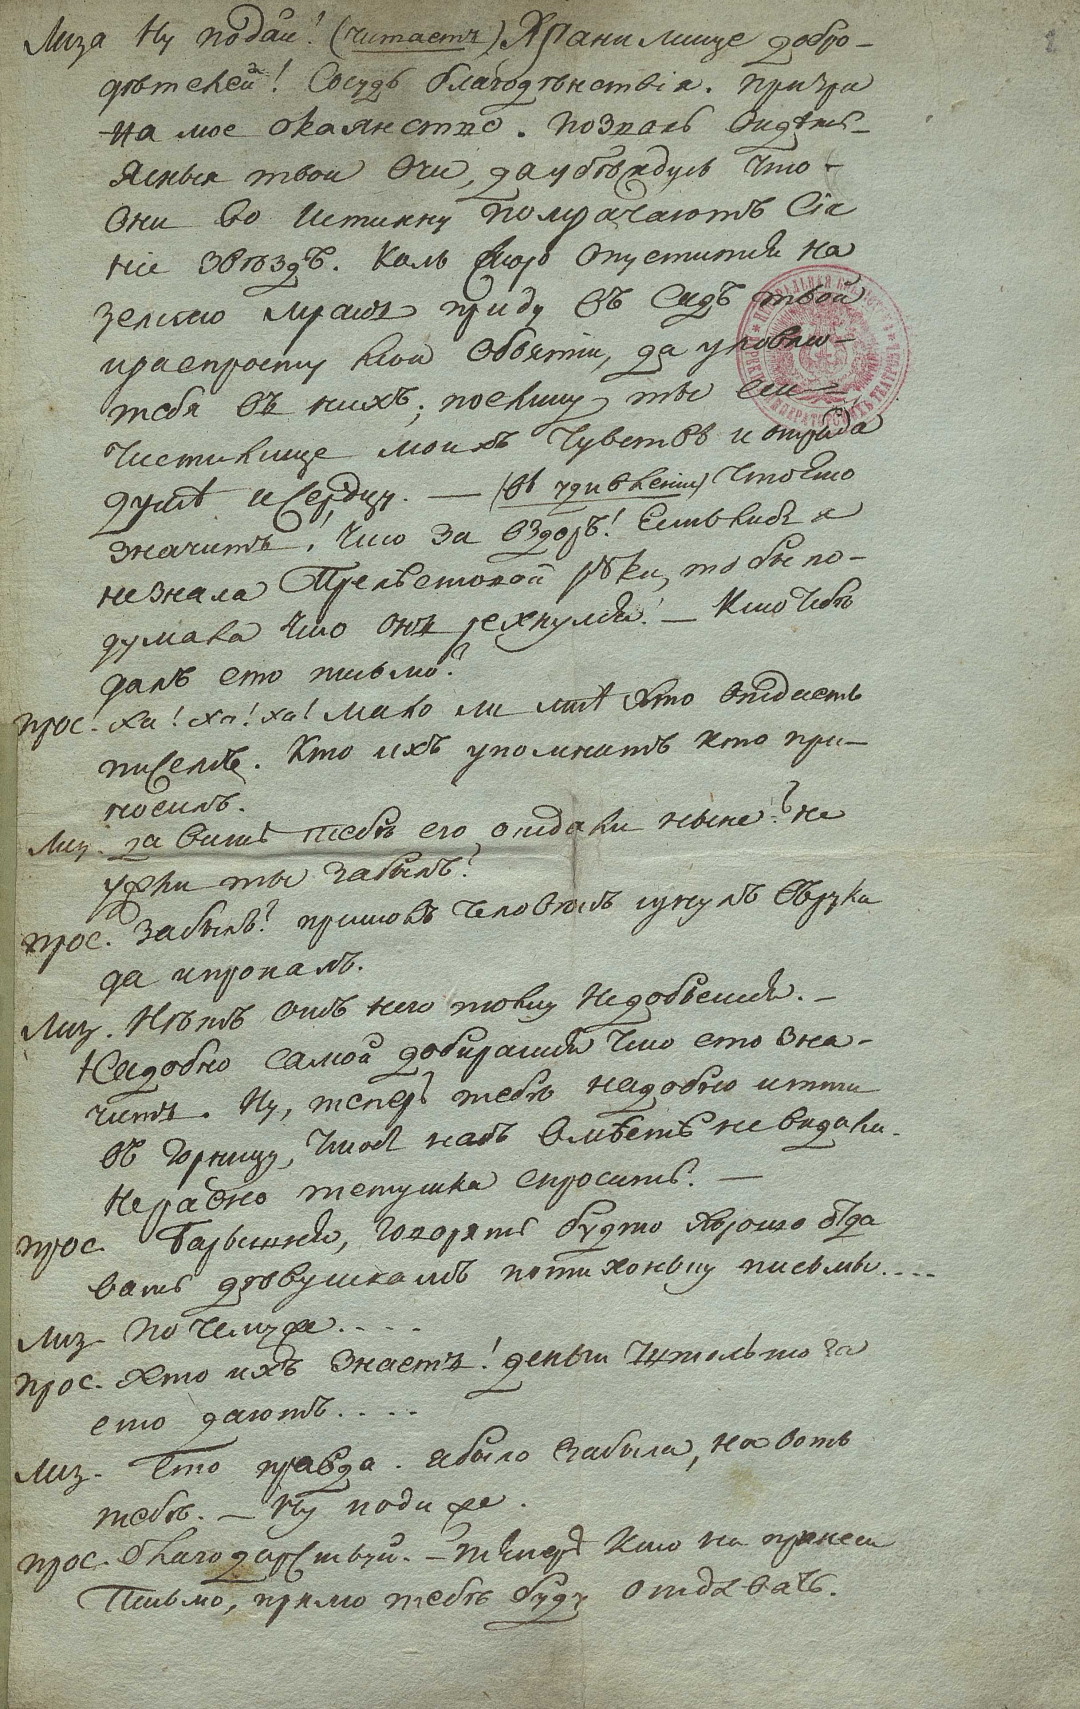 Лиза Ну подай! (читаетъ) Хранилище добро-
дѣтелей! Сосудъ благоденствія. призри
на мое окаянство. позволь видѣть
Ясныя твои Очи, да убѣждусь что
Они во Истинну помрачаютъ Сія
ніе звѣздъ. Коль скоро опустится на
землю мракъ приду въ Садъ твой
ираспрострy мои Объятіи, да уловлю
тебя въ нихъ; поелику ты еси
Чистилище моихъ Чувствъ и отрада
душѣ и Сердцу. — (въ удивленіи) Что Это
значитъ! Что за вздоръ! Естьлибъ я
незнала руки, то бы по-
думала что онъ рехнулся! — Кто тебѣ
далъ ето письмо?
Прос. Ха! ха! ха! Мало ли мнѣ Хто отдаетъ
писемъ. Кто ихъ упомнитъ кто при-
носилъ.
Лиз. да вить тебѣ его отдали ныне? не
ужли ты забылъ?
прос. Забылъ? пришовъ Человѣкъ сунулъ въруки
да ипропалъ.
Лиз. Нѣтъ отъ него толку Недобьешься. —
Надобно самой добираться Что ето зна-
читъ. Ну, теперь тебѣ надобно итти
въ Горницу, Чтобъ насъ вмѣстѣ не видали.
Неравно тетушка спроситъ. —
прос. Барышня, говорятъ будто Хорошо отда
вать дѣвушкамъ потихоньку письмы....
Лиз. По Чемуже....
прос. Хто ихъ Знаетъ! деньги Чтоль то за
ето даютъ....
Лиз. Ето правда. ябыло Забыла, на вотъ
тебѣ. — Ну поди же.
прос. благодарствуй. — теперь Кто ни принеси
Письмо, прямо тебѣ буду отдавать.